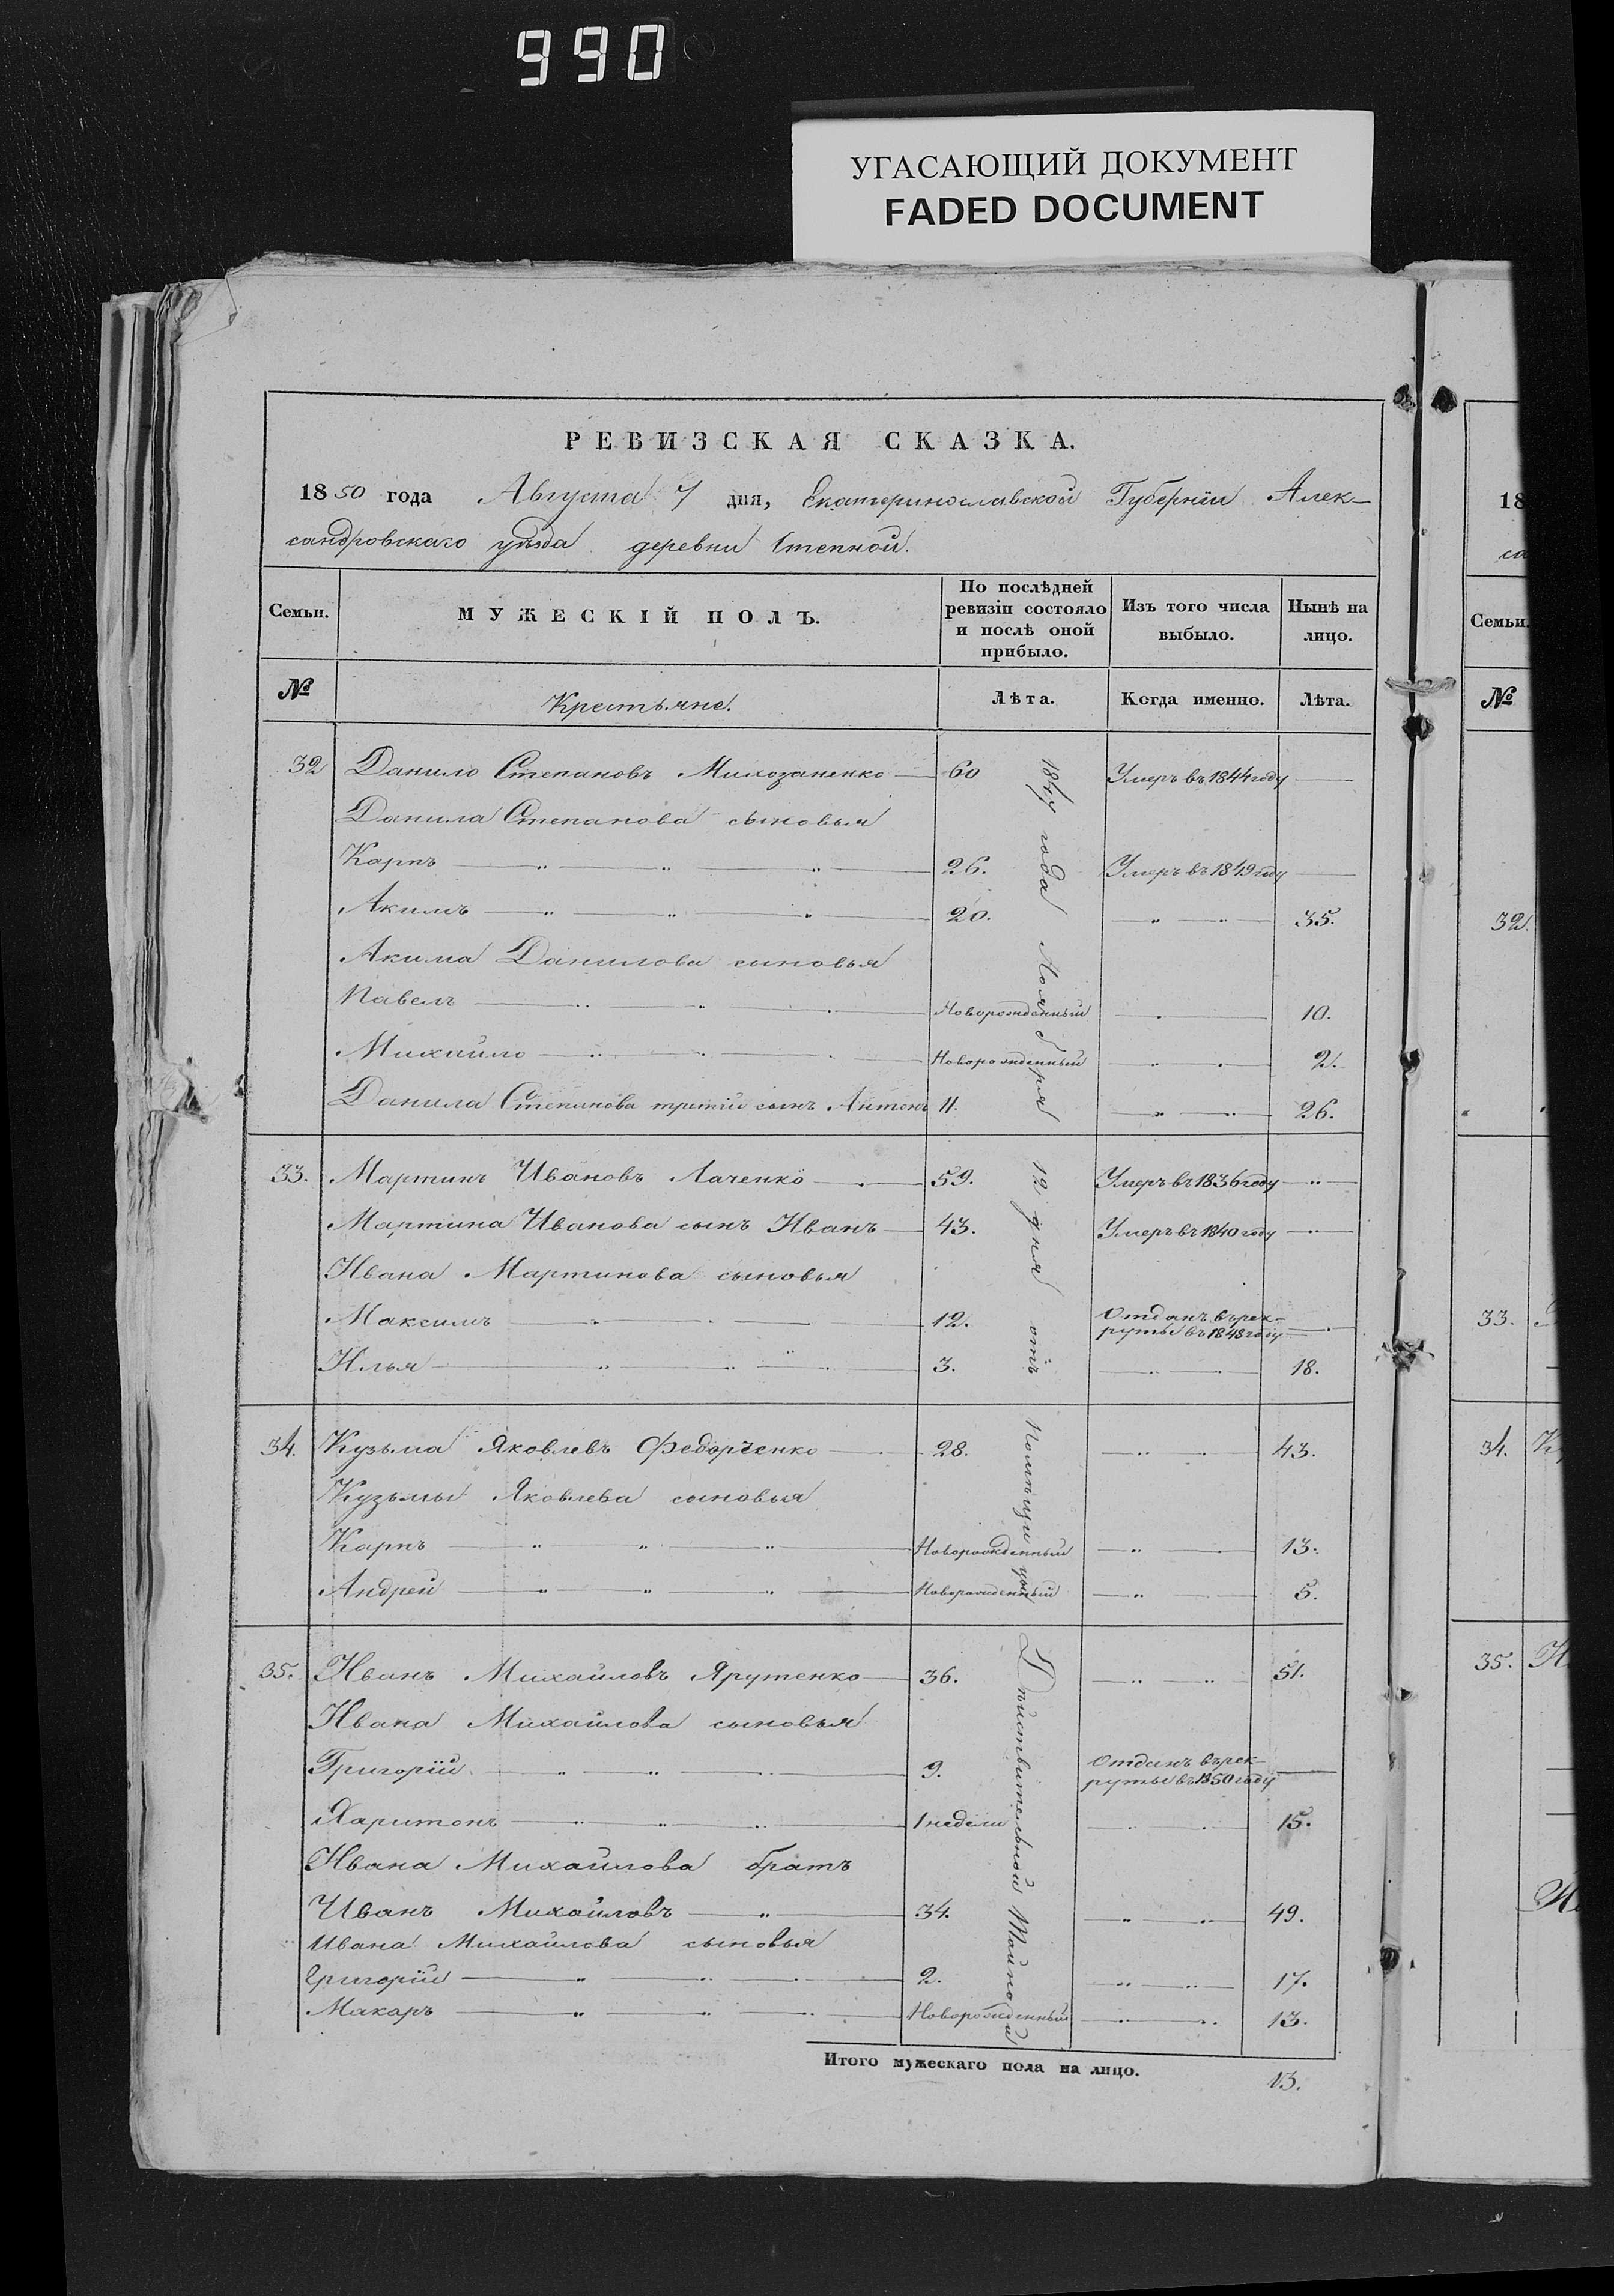 990
УГАСАЮЩИЙ ДОКУМЕНТ
FADED DOCUMENT
РЕВИЗСКАЯ СКАЗКА.
1850 года Августа 7 дня, Екатеринославской Губернiи Алек-
сандровскаго уѣзда деревни Степной.
Семьи. МУЖЕСКIЙ ПОЛЪ. По послѣдней ревизiи состояло и послѣ оной прибыло. Изъ того числа выбыло. Нынѣ на лицо.
№ Крестьяне. Лѣта. Когда именно. Лѣта.
32 Данило Степановъ 60 Умеръ въ 1844 году
Данила Степанова сыновья
Карпъ 26. Умеръ въ 1849 году
Акимъ 20. 35.
Акима Данилова сыновья
Павелъ Новорожденный 10.
Михайло Новорожденный 2.
Данила Степанова третiй сынъ Антонъ 11. 26.
33. Мартинъ Ивановъ Лаченко 59. Умеръ въ 1836 году
Мартина Иванова сынъ Иванъ 43. Умеръ въ 1840 году
Ивана Мартинова сыновья
Максимъ 12. Отданъ въ рек-
руты въ 1848 году
Илья 3. 18.
34. Кузьма Яковлевъ Федорченко 28. 43.
Кузьмы Яковлева сыновья
Карпъ Новорожденный 13.
Андрей Новорожденный 5.
35. Иванъ Михайловъ Ярутенко 36. 51.
Ивана Михайлова сыновья
Григорiй 9. Отданъ въ рек-
руты въ 1850 году
Харитонъ 1 недели 15.
Ивана Михайлова братъ
Иванъ Михайловъ 34. 49.
Ивана Михайлова сыновья
Григорiй 2. 17.
Макаръ Новорожденный 13.
Итого мужескаго пола на лицо. 13.
года Ноября 12 дня отъ Помѣщицы Дѣйствительной Тайной
18
са
Семьи.
№
32.
33.
34. К
35. И